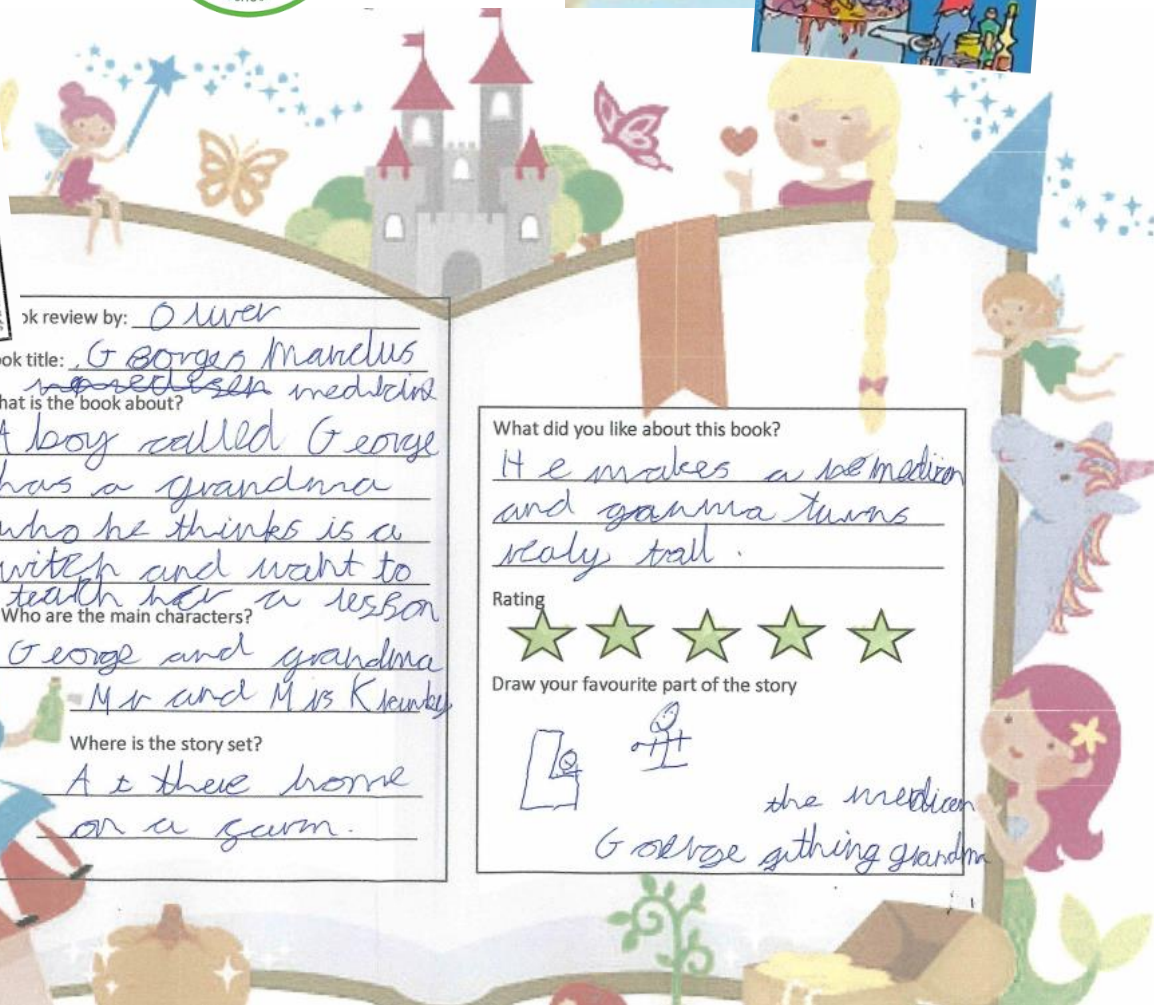 ok review by: Oliver
ok title: Georges Marvelus
medicine
hat is the book about?
A boy called George
has a grandma
who he thinks is a
witch and waht to
teach her a lesson
Who are the main characters?
George and grandma
Mr and Mrs Kraunky
Where is the story set?
At there home
on a farm.
What did you like about this book?
He makes a medicen
and granma turns
realy tall.
Rating
Draw your favourite part of the story
the medicen
George githing grandma